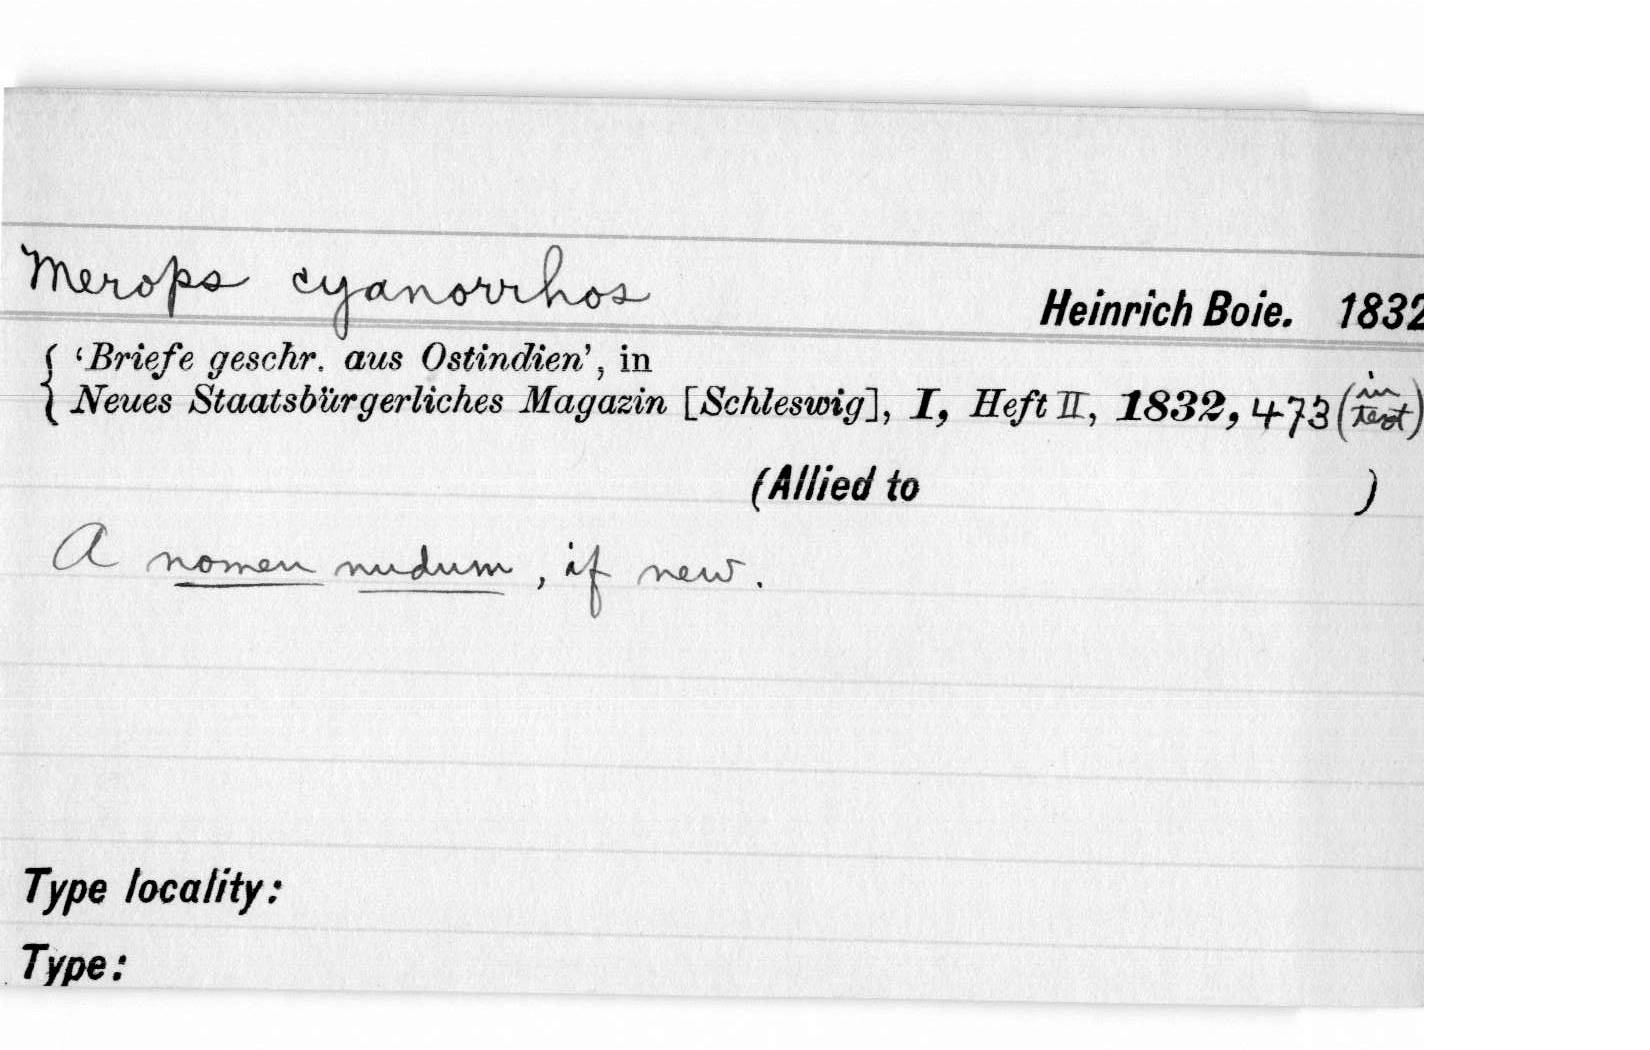 Merops cyanorrhos
Heinrich Boie. 1832
‘Briefe geschr. aus Ostindien’, in
Neues Staatsbürgerliches Magazin [Schleswig], I, Heft II, 1832, 473 (in text)
(Allied to )
A nomen nudum, if new.
Type locality:
Type: